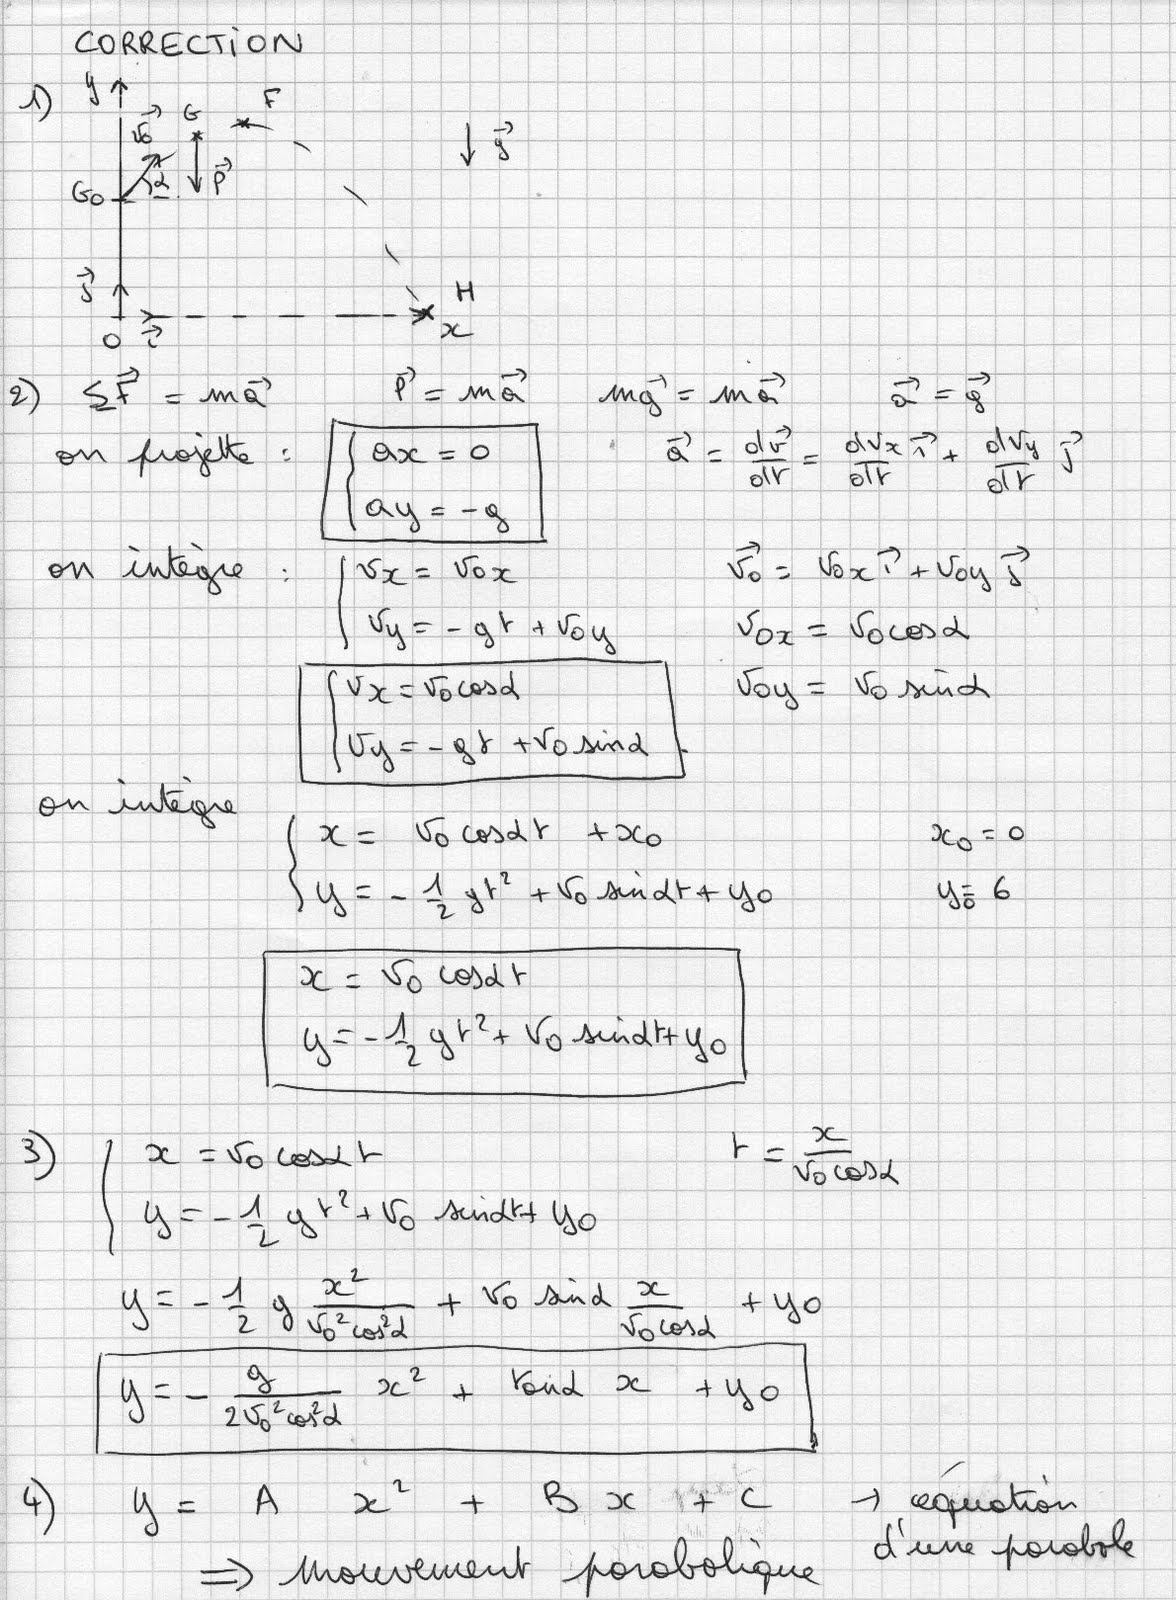 CORRECTION
1) y
v⃗0 G F
g⃗
G0 α P⃗
j⃗
H
O i⃗ x
2) ΣF⃗ = ma⃗ P⃗ = ma⃗ mg⃗ = ma⃗ a⃗ = g⃗
on projette : { ax = 0 a⃗ = dv⃗/dt = dvx/dt i⃗ + dvy/dt j⃗
ay = -g
on intègre : { vx = v0x v⃗0 = v0x i⃗ + v0y j⃗
vy = -gt + v0y v0x = v0 cosα
{ vx = v0 cosα v0y = v0 sinα
vy = -gt + v0 sinα
on intègre
{ x = v0 cosα t + x0 x0 = 0
y = - 1/2 gt² + v0 sinα t + y0 y0 = 6
x = v0 cosα t
y = - 1/2 gt² + v0 sinα t + y0
3) { x = v0 cosα t t = x/(v0 cosα)
y = - 1/2 gt² + v0 sinα t + y0
y = - 1/2 g x²/(v0² cos²α) + v0 sinα x/(v0 cosα) + y0
y = - g/(2v0² cos²α) x² + tanα x + y0
4) y = A x² + B x + C → équation
d'une parabole
⇒ Mouvement parabolique